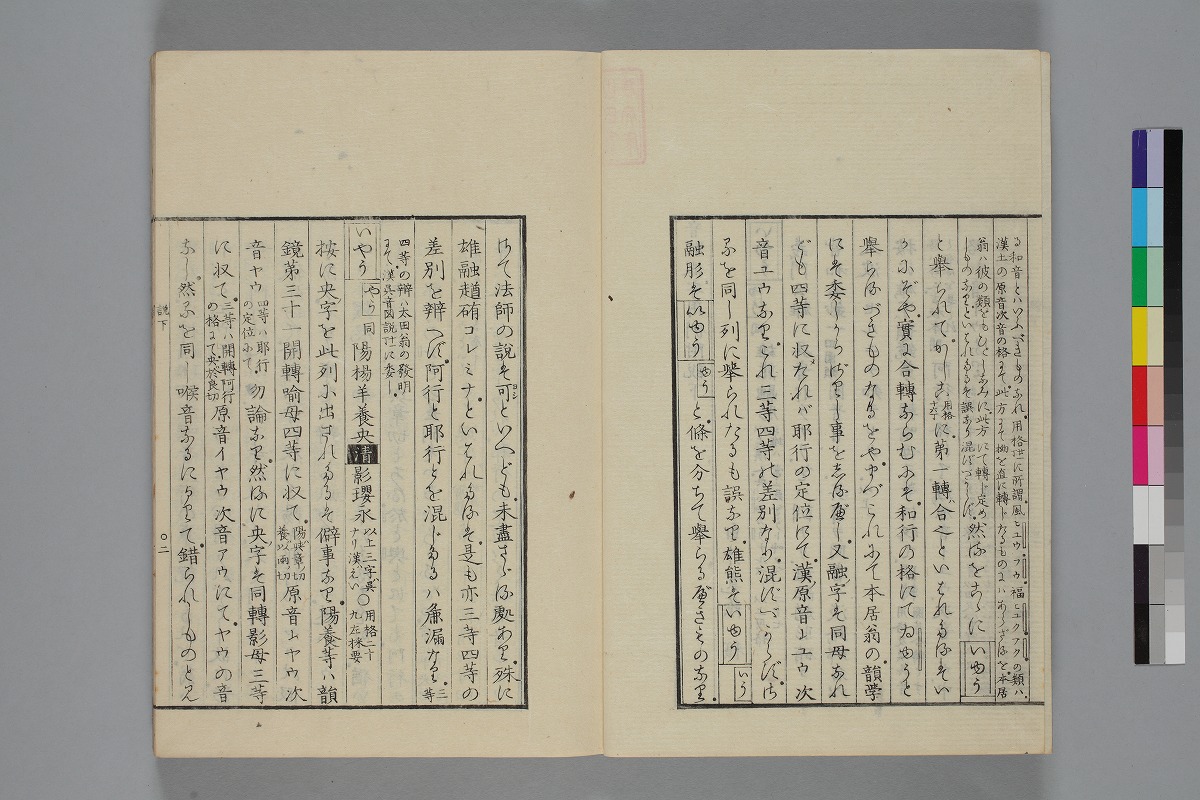 る和音とハいふべきものなれ。用格廿二に所謂風ヒユウ。フウ。福ヒユクフクの類ハ。
漢土の原音次音の格にて此方にて拗を直に轉じたるものにハあらざるを。本居
翁ハ彼の類をもひとしなみに此方にて轉じ定め
しものなりといはれたるを誤なり混ずべからず。然るをこゝに いゆう
と擧られて。かしこ用格十六丁に。第一轉ハ合也といはれたるそい
かにぞや。實に合轉ならむにそ和行の格にてゐゆうと
擧らるべきものなるをや。かゝれにて本居翁の韻學
にそ委しからざりし事をしるべし。又融字も同母なれ
ども四等に収たれバ耶行の定位にて。漢原音ヒユウ次
音ユウなり。これ三等四等の差別なり。混ずべからず。さ
るを同し列に擧られたるも誤なり。雄熊そ いゆう いう
融肜そ いゆう ゆう と。條を分ちて擧らるべきものなり。
けて法師の説も可といへども。未盡さゞる處あり。殊に
雄融趥䞥コレミナ。といはれたるそ。是も亦三等四等の
差別を辨へず。阿行と耶行とを混じたるハ麁漏なり。三等
四等の辨ハ太田翁の發明
にて漢呉音圖説廿に委し。
いやう やう同 陽楊羊養央 清 影瓔永 以上三字呉ナリ漢えい〇用格二十九左採要
按に央字を此列に出されたるそ僻事なり。陽養等ハ韻
鏡第三十一開轉喩母四等に収て。陽與章ノ切養以兩ノ切原音ヒヤウ次
音ヤウ四等ハ耶行の定位にて勿論なり。然るに央字そ同轉影母三等
に収て。三等ハ開轉阿行の格にて央於良切原音イヤウ次音アウにて。ヤウの音
なし。然るを同し喉音なるによりて。錯られしものとみ
説下
〇二